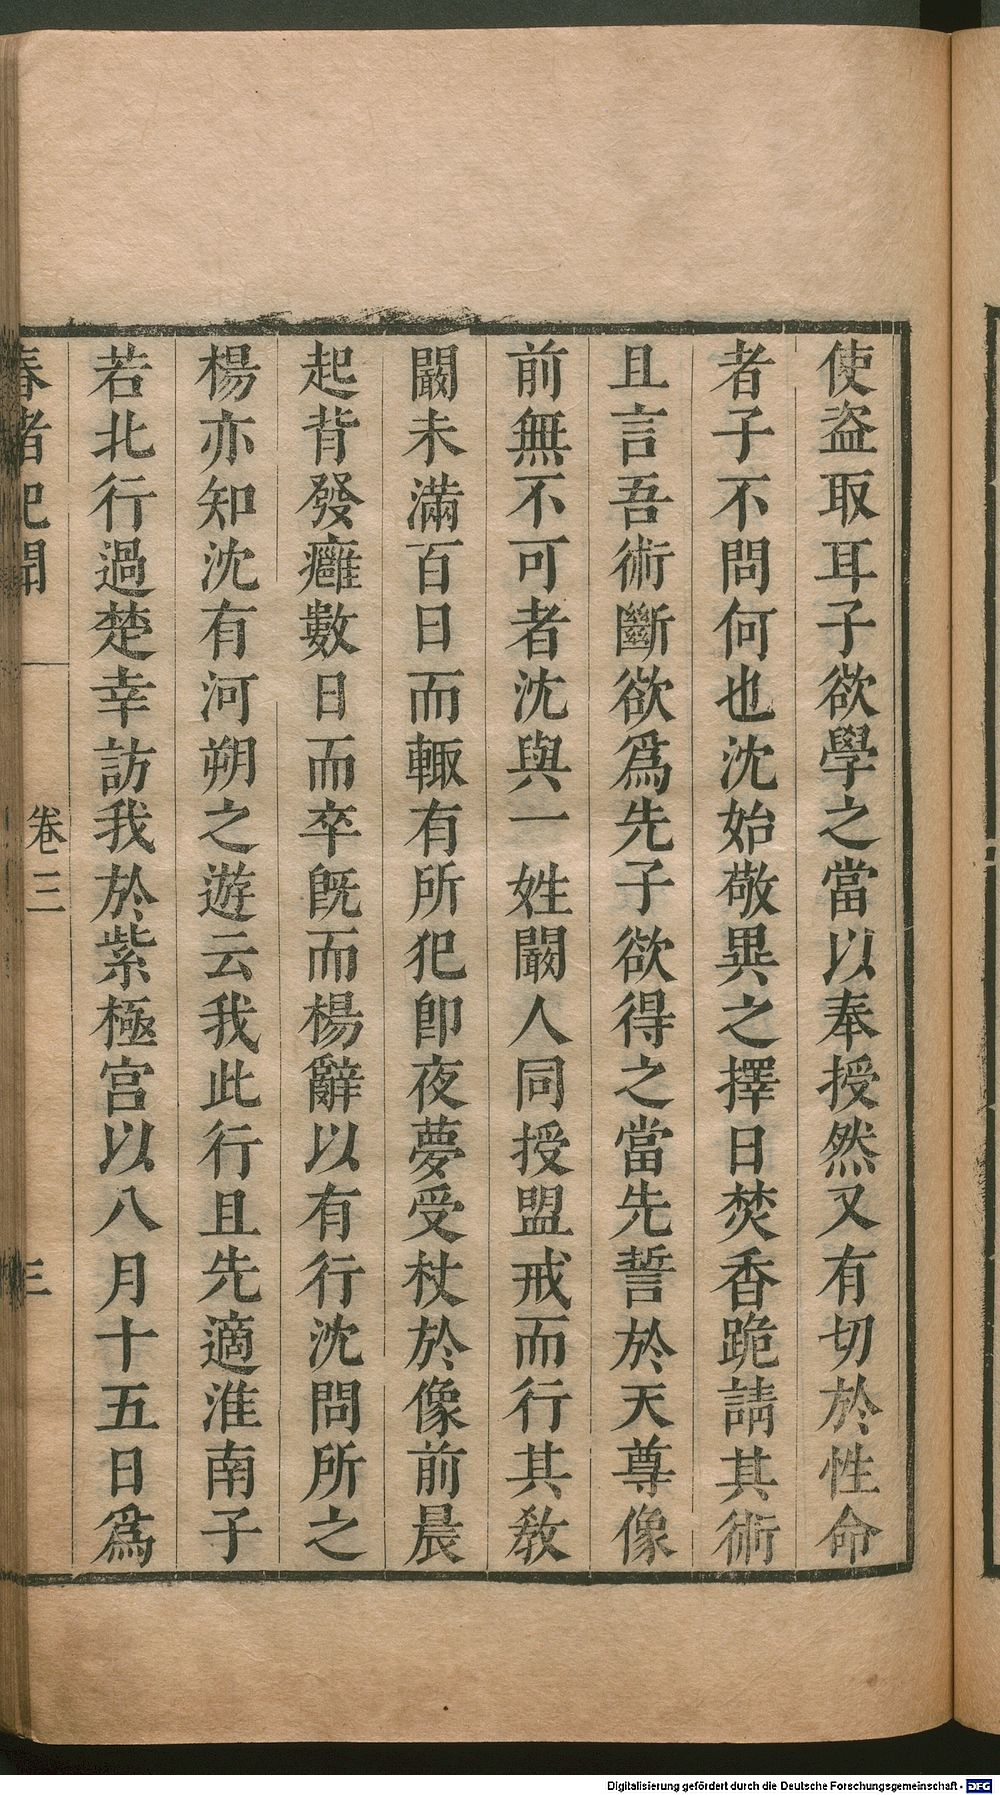 使盗取耳子欲學之當以奉授然又有切於性命
者子不問何也沈始敬異之擇日焚香跪請其術
且言吾術斷欲爲先子欲得之當先誓於天尊像
前無不可者沈與一姓闞人同授盟戒而行其敎
闞未滿百日而輙有所犯卽夜夢受杖於像前晨
起背發癰數日而卒旣而楊辭以有行沈問所之
楊亦知沈有河朔之遊云我此行且先適淮南子
若北行過楚幸訪我於紫極宮以八月十五日爲
春渚紀聞 卷三 三
Digitalisierung gefördert durch die Deutsche Forschungsgemeinschaft - DFG